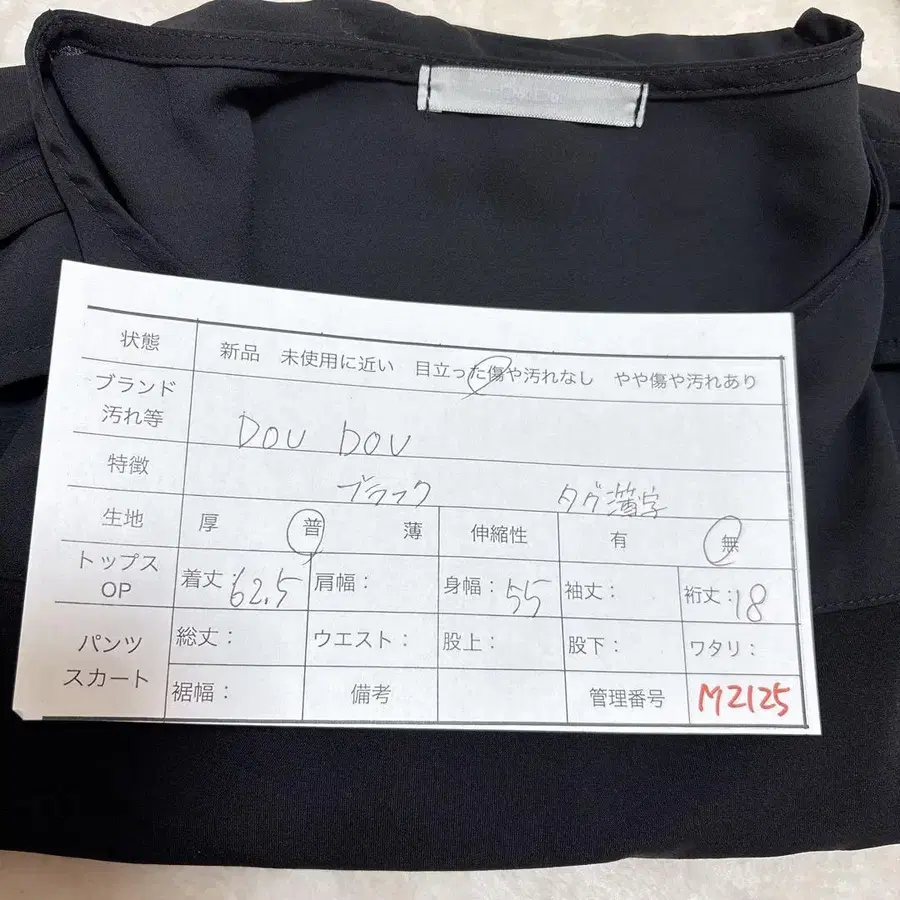 DouDou
状態 新品 未使用に近い 目立った傷や汚れなし やや傷や汚れあり
ブランド
汚れ等 DOU DOU
特徴 ブラック タグ薄字
生地 厚 普 薄 伸縮性 有 無
トップス
OP 着丈:62.5 肩幅: 身幅:55 袖丈: 裄丈:18
パンツ
スカート 総丈: ウエスト: 股上: 股下: ワタリ:
裾幅: 備考 管理番号 M2125